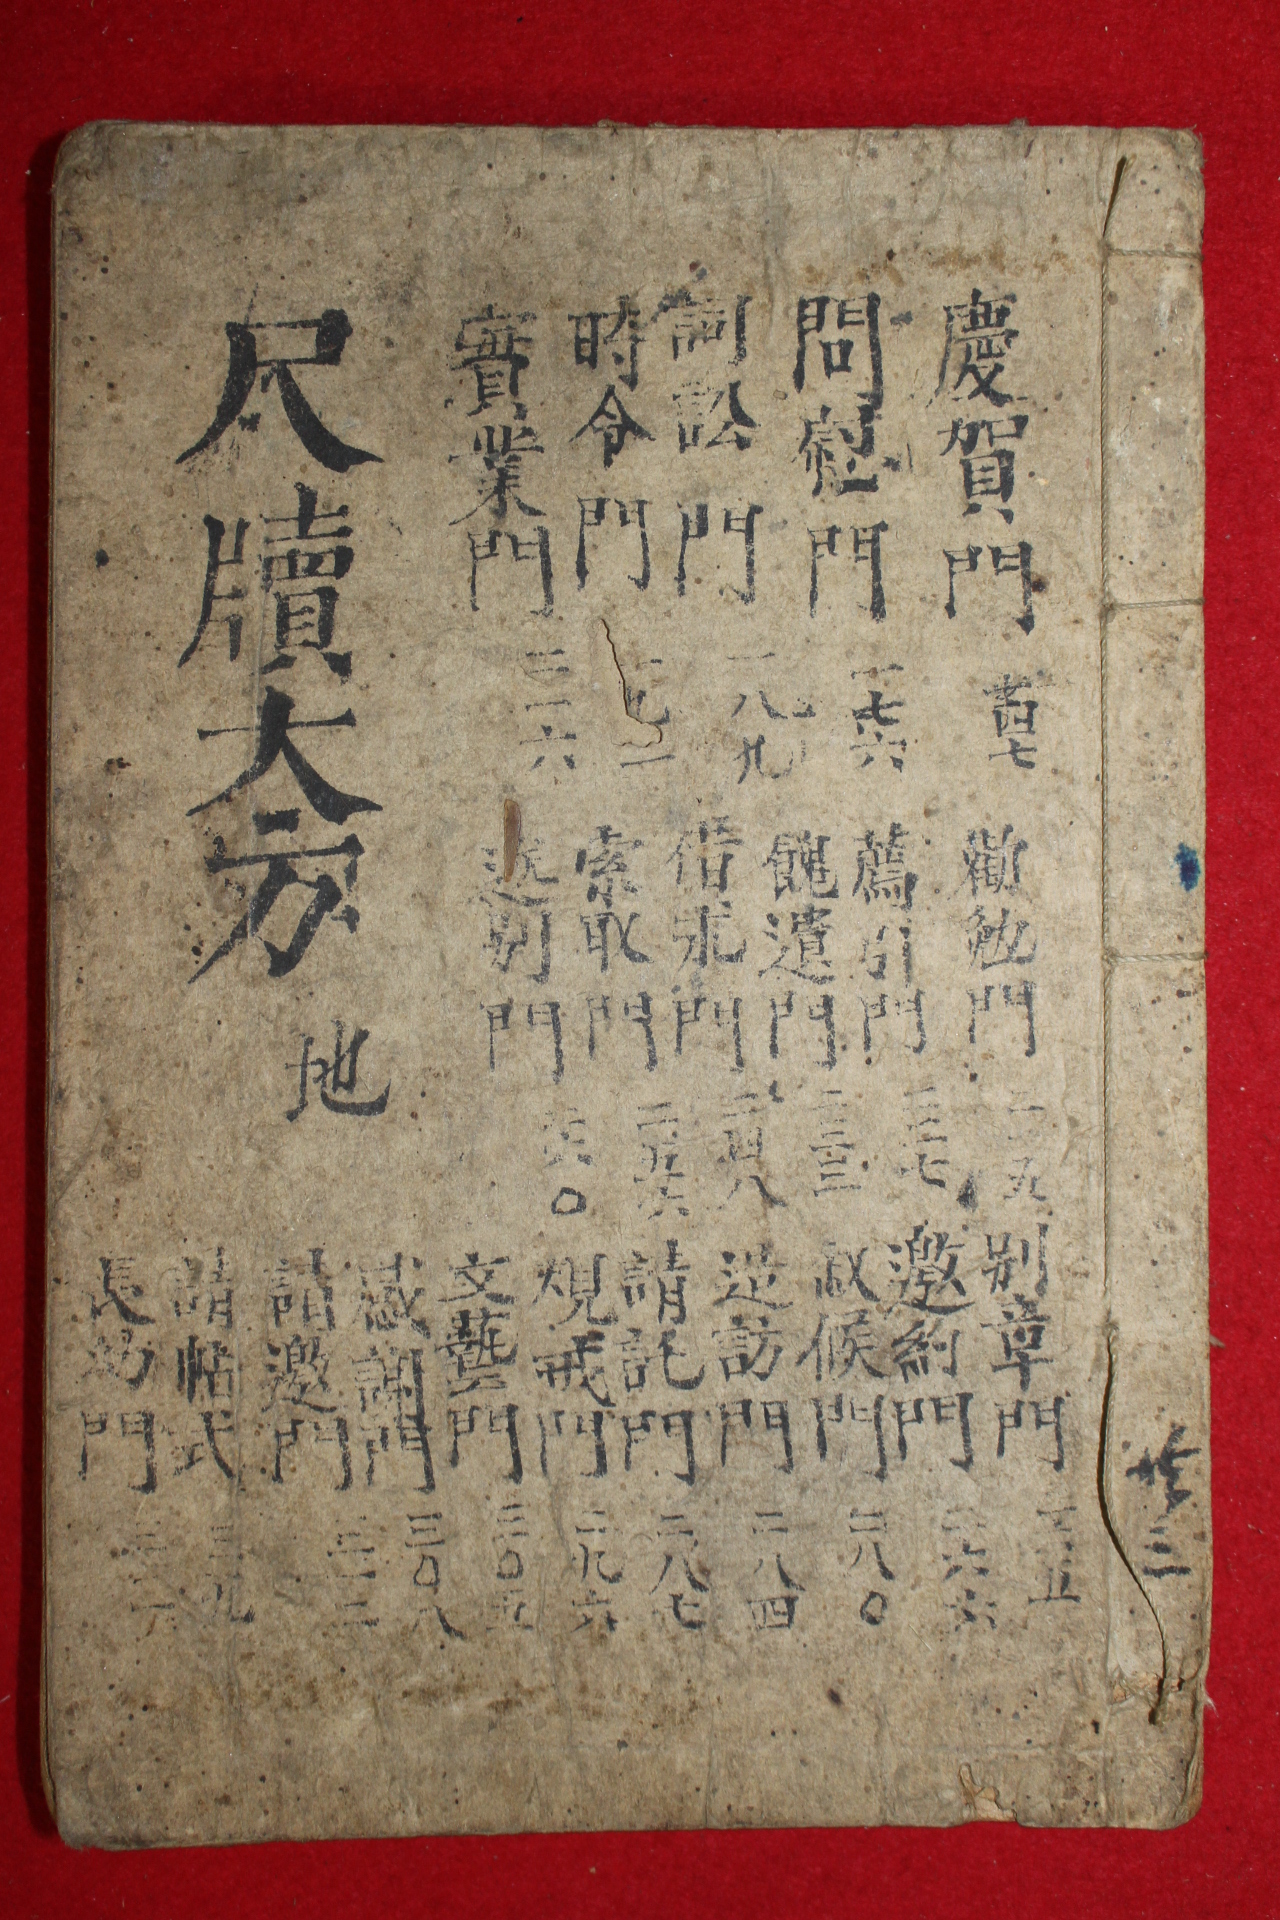 慶賀門 百四七
問慰門 一七六
詞訟門 一八九
時令門
實業門 二一六
勸勉門 二一五
薦引門 二二七
餽遺門 二三三
借求門 二四八
索取門 二五六
送別門 二六〇
別章門
邀約門 二六六
叙候門 二八〇
造訪門 二八四
請託門 二八七
規戒門 二九六
文藝門 三〇五
感謝門 三〇八
請邀門 三一二
請帖式 三一九
長幼門
尺牘大方 地
共三